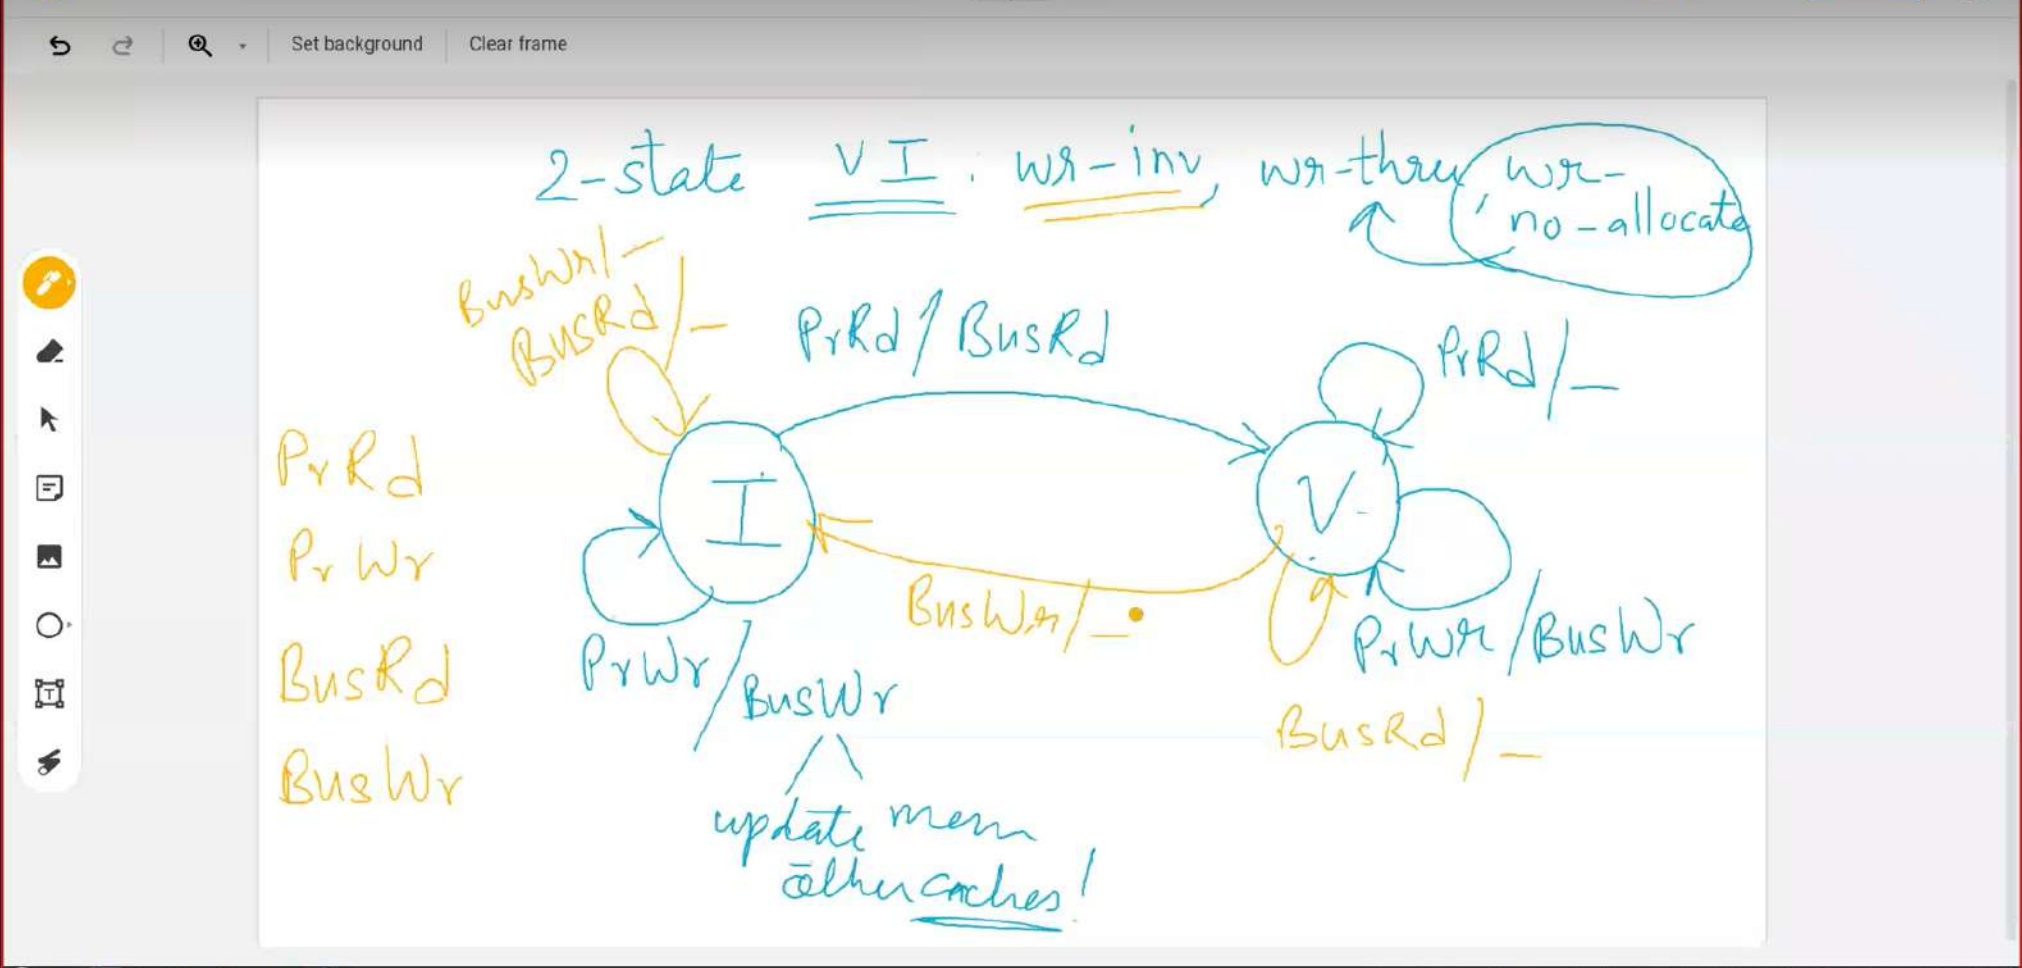 Set background
Clear frame
2-state VI: wr-inv, wr-thru wr-
no-allocate
BusWr/-
BusRd/-
PrRd/BusRd
PrRd/-
PrRd
I
V
PrWr
BusWr/-
PrWr/BusWr
BusRd
PrWr/BusWr
BusRd/-
BusWr
update mem
other caches!
T